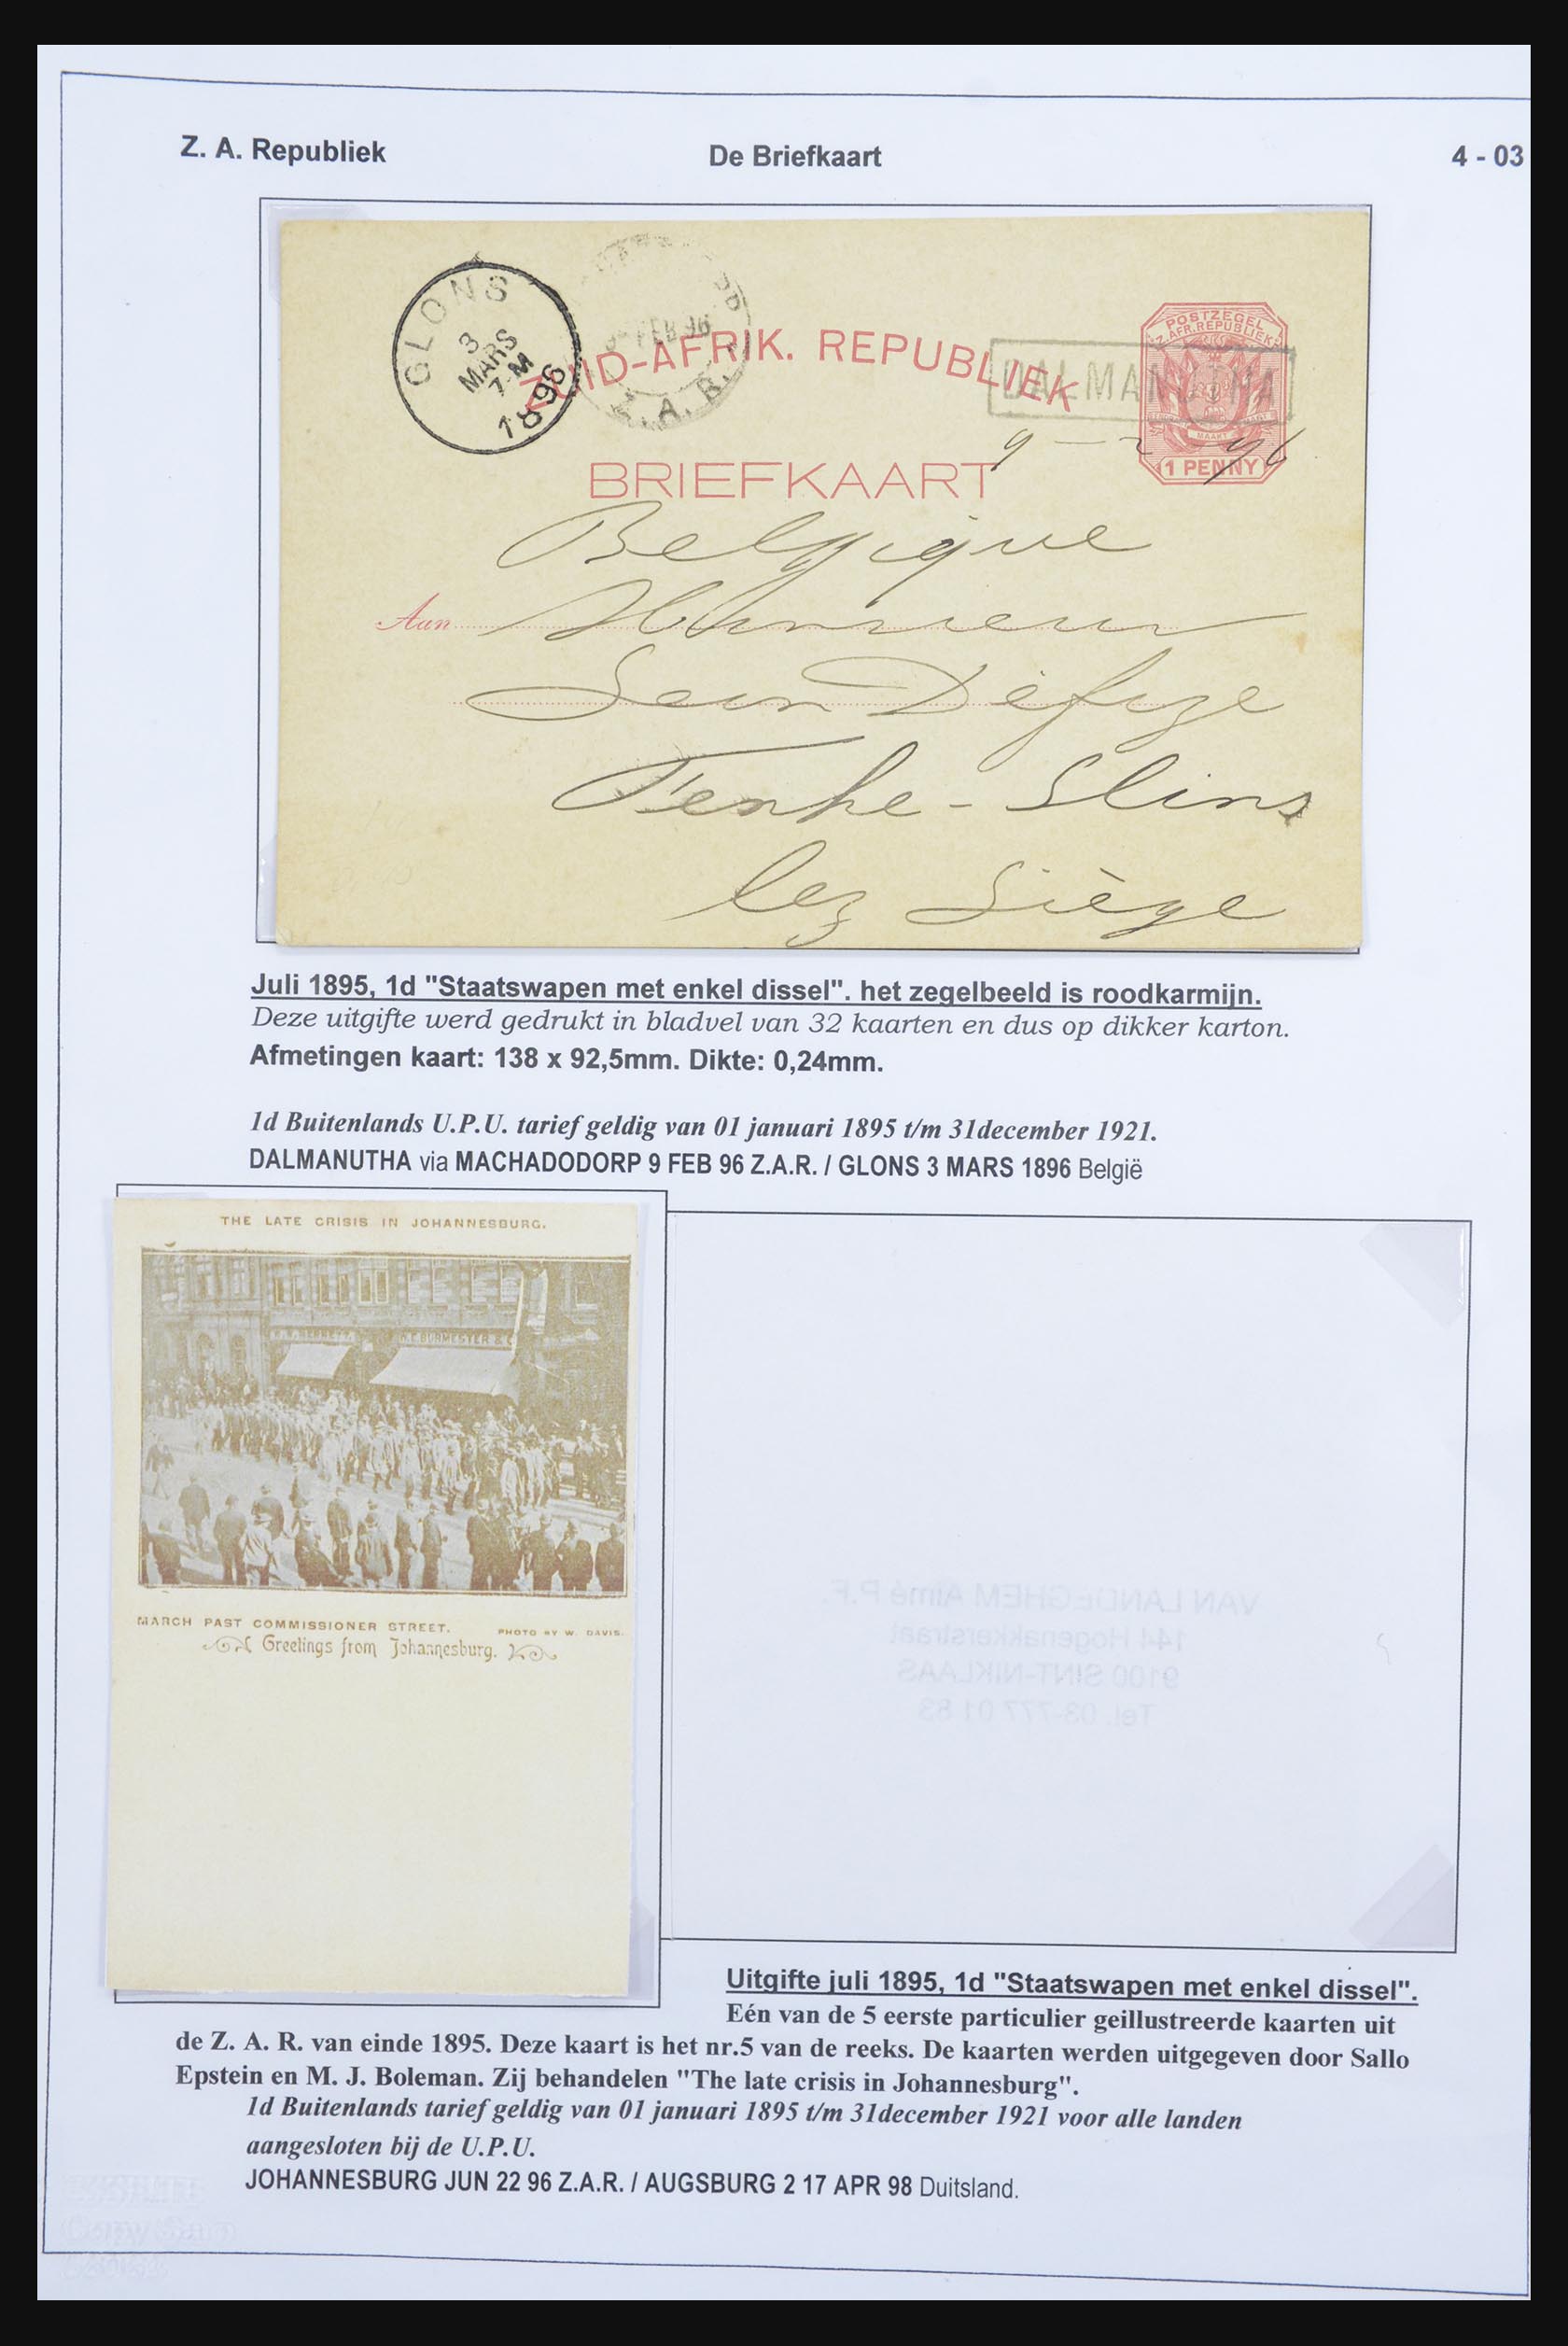 Z. A. Republiek
De Briefkaart
4 - 03
GLONS
3
MARS
7-M
1896
FEB 96
Z. A. R.
ZUID-AFRIK. REPUBLIEK
POSTZEGEL
Z. AFR. REPUBLIEK
MAART
1 PENNY
DALMANUTHA
9 - 2 - 96
BRIEFKAART
Belgique
Aan Monsieur
Jean Defize
Fexhe-Slins
lez Liège
Juli 1895, 1d "Staatswapen met enkel dissel". het zegelbeeld is roodkarmijn.
Deze uitgifte werd gedrukt in bladvel van 32 kaarten en dus op dikker karton.
Afmetingen kaart: 138 x 92,5mm. Dikte: 0,24mm.
1d Buitenlands U.P.U. tarief geldig van 01 januari 1895 t/m 31december 1921.
DALMANUTHA via MACHADODORP 9 FEB 96 Z.A.R. / GLONS 3 MARS 1896 België
THE LATE CRISIS IN JOHANNESBURG.
BURMESTER & C
MARCH PAST COMMISSIONER STREET.
PHOTO BY W. DAVIS.
Greetings from Johannesburg.
VAN LANDEGHEM Aimé P.F.
144 Hogenakkerstraat
9100 SINT-NIKLAAS
Tel. 03-777 01 53
Uitgifte juli 1895, 1d "Staatswapen met enkel dissel".
Eén van de 5 eerste particulier geillustreerde kaarten uit
de Z. A. R. van einde 1895. Deze kaart is het nr.5 van de reeks. De kaarten werden uitgegeven door Sallo
Epstein en M. J. Boleman. Zij behandelen "The late crisis in Johannesburg".
1d Buitenlands tarief geldig van 01 januari 1895 t/m 31december 1921 voor alle landen
aangesloten bij de U.P.U.
JOHANNESBURG JUN 22 96 Z.A.R. / AUGSBURG 2 17 APR 98 Duitsland.